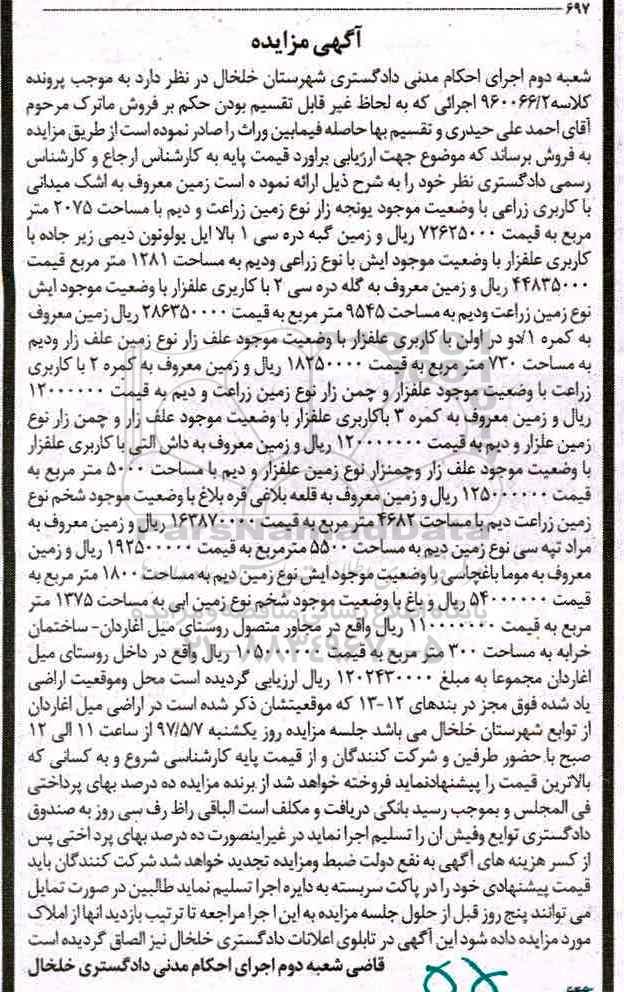 ۶۹۷
آگهی مزایده
شعبه دوم اجرای احکام مدنی دادگستری شهرستان خلخال در نظر دارد به موجب پرونده
کلاسه۹۶۰۰۶۶/۲ اجرائی که به لحاظ غیر قابل تقسیم بودن حکم بر فروش ماترک مرحوم
آقای احمد علی حیدری و تقسیم بها حاصله فیمابین وراث را صادر نموده است از طریق مزایده
به فروش برساند که موضوع جهت ارزیابی براورد قیمت پایه به کارشناس ارجاع و کارشناس
رسمی دادگستری نظر خود را به شرح ذیل ارائه نموده است زمین معروف به اشک میدانی
با کاربری زراعی با وضعیت موجود یونجه زار نوع زمین زراعت و دیم با مساحت ۲۰۷۵ متر
مربع به قیمت ۷۲۶۲۵۰۰۰ ریال و زمین گبه دره سی ۱ بالا ایل یولونون دیمی زیر جاده با
کاربری علفزار با وضعیت موجود ایش با نوع زراعی ودیم به مساحت ۱۲۸۱ متر مربع قیمت
۴۴۸۳۵۰۰۰ ریال و زمین معروف به گله دره سی ۲ با کاربری علفزار با وضعیت موجود ایش
نوع زمین زراعت ودیم به مساحت ۹۵۴۵ متر مربع به قیمت ۲۸۶۳۵۰۰۰۰ ریال زمین معروف
به کمره ۱/دو در اولن با کاربری علفزار با وضعیت موجود علف زار نوع زمین علف زار ودیم
به مساحت ۷۳۰ متر مربع به قیمت ۱۸۲۵۰۰۰۰ ریال و زمین معروف به کمره ۲ با کاربری
زراعت با وضعیت موجود علفزار و چمن زار نوع زمین زراعت و دیم به قیمت ۱۲۰۰۰۰۰۰
ریال و زمین معروف به کمره ۳ باکاربری علفزار با وضعیت موجود علف زار و چمن زار نوع
زمین علزار و دیم به قیمت ۱۲۰۰۰۰۰۰۰ ریال و زمین معروف به داش التی با کاربری علفزار
با وضعیت موجود علف زار وچمنزار نوع زمین علفزار و دیم با مساحت ۵۰۰۰ متر مربع به
قیمت ۱۲۵۰۰۰۰۰۰ ریال و زمین معروف به قلعه بلاغی قره بلاغ با وضعیت موجود شخم نوع
زمین زراعت دیم با مساحت ۴۶۸۲ متر مربع به قیمت ۱۶۳۸۷۰۰۰۰ ریال و زمین معروف به
مراد تپه سی نوع زمین دیم به مساحت ۵۵۰۰ مترمربع به قیمت ۱۹۲۵۰۰۰۰۰ ریال و زمین
معروف به موما باغجاسی با وضعیت موجود ایش نوع زمین دیم به مساحت ۱۸۰۰ متر مربع به
قیمت ۵۴۰۰۰۰۰۰ ریال و باغ با وضعیت موجود شخم نوع زمین ابی به مساحت ۱۳۷۵ متر
مربع به قیمت ۱۱۰۰۰۰۰۰۰ ریال واقع در مجاور متصول روستای میل اغاردان- ساختمان
خرابه به مساحت ۳۰۰ متر مربع به قیمت ۱۰۵۰۰۰۰۰۰ ریال واقع در داخل روستای میل
اغاردان مجموعا به مبلغ ۱۲۰۲۴۳۰۰۰۰ ریال ارزیابی گردیده است محل وموقعیت اراضی
یاد شده فوق مجز در بندهای ۱۲-۱۳ که موقعیتشان ذکر شده است در اراضی میل اغاردان
از توابع شهرستان خلخال می باشد جلسه مزایده روز یکشنبه ۹۷/۵/۷ از ساعت ۱۱ الی ۱۲
صبح با حضور طرفین و شرکت کنندگان و از قیمت پایه کارشناسی شروع و به کسانی که
بالاترین قیمت را پیشنهادنماید فروخته خواهد شد از برنده مزایده ده درصد بهای پرداختی
فی المجلس و بموجب رسید بانکی دریافت و مکلف است الباقی راظ رف سی روز به صندوق
دادگستری توایع وفیش ان را تسلیم اجرا نماید در غیراینصورت ده درصد بهای پرداختی پس
از کسر هزینه های آگهی به نفع دولت ضبط ومزایده تجدید خواهد شد شرکت کنندگان باید
قیمت پیشنهادی خود را در پاکت سربسته به دایره اجرا تسلیم نماید طالبین در صورت تمایل
می توانند پنج روز قبل از حلول جلسه مزایده به این اجرا مراجعه تا ترتیب بازدید انها از املاک
مورد مزایده داده شود این آگهی در تابلوی اعلانات دادگستری خلخال نیز الصاق گردیده است
قاضی شعبه دوم اجرای احکام مدنی دادگستری خلخال